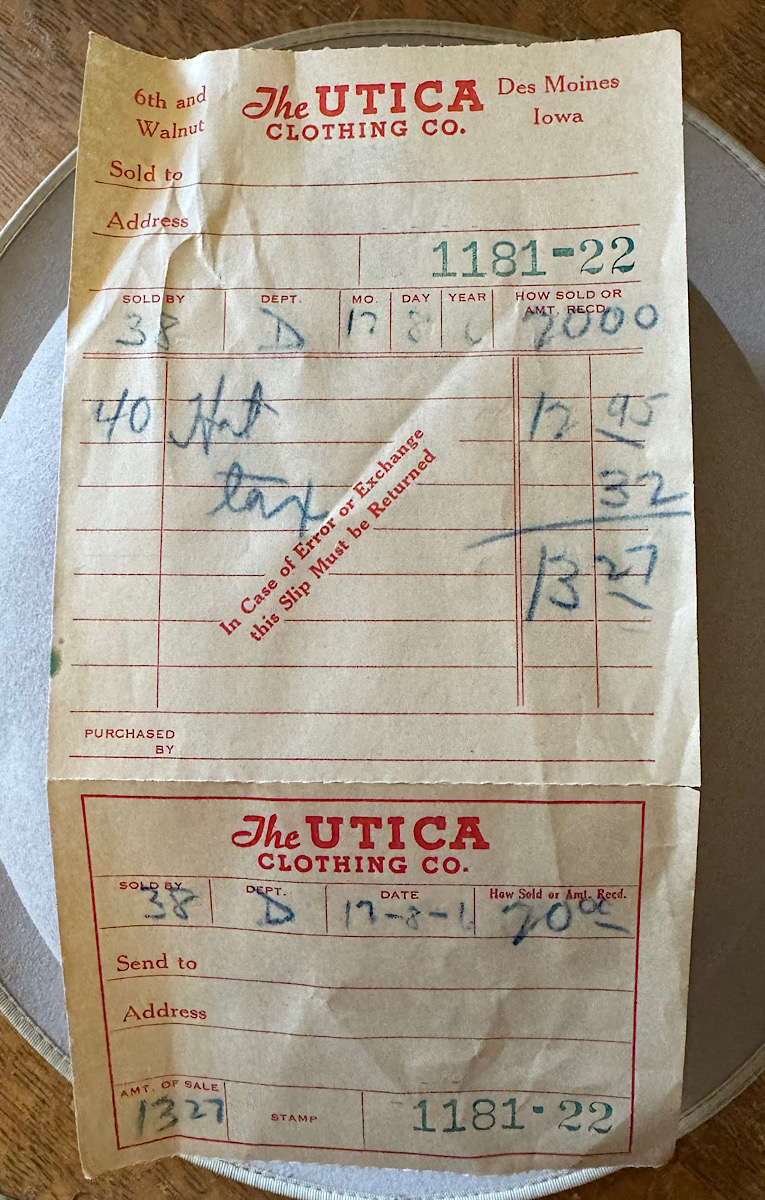 6th and
Walnut
The UTICA
CLOTHING CO.
Des Moines
Iowa
Sold to
Address
1181-22
SOLD BY DEPT. MO. DAY YEAR HOW SOLD OR
AMT. RECD.
38 D 12 8 2000
40 Hat 12 95
tax 32
13 27
In Case of Error or Exchange
this Slip Must be Returned
PURCHASED
BY
The UTICA
CLOTHING CO.
SOLD BY DEPT. DATE How Sold or Amt. Recd.
38 D 12-8-1 20 00
Send to
Address
AMT. OF SALE
1327 STAMP 1181-22